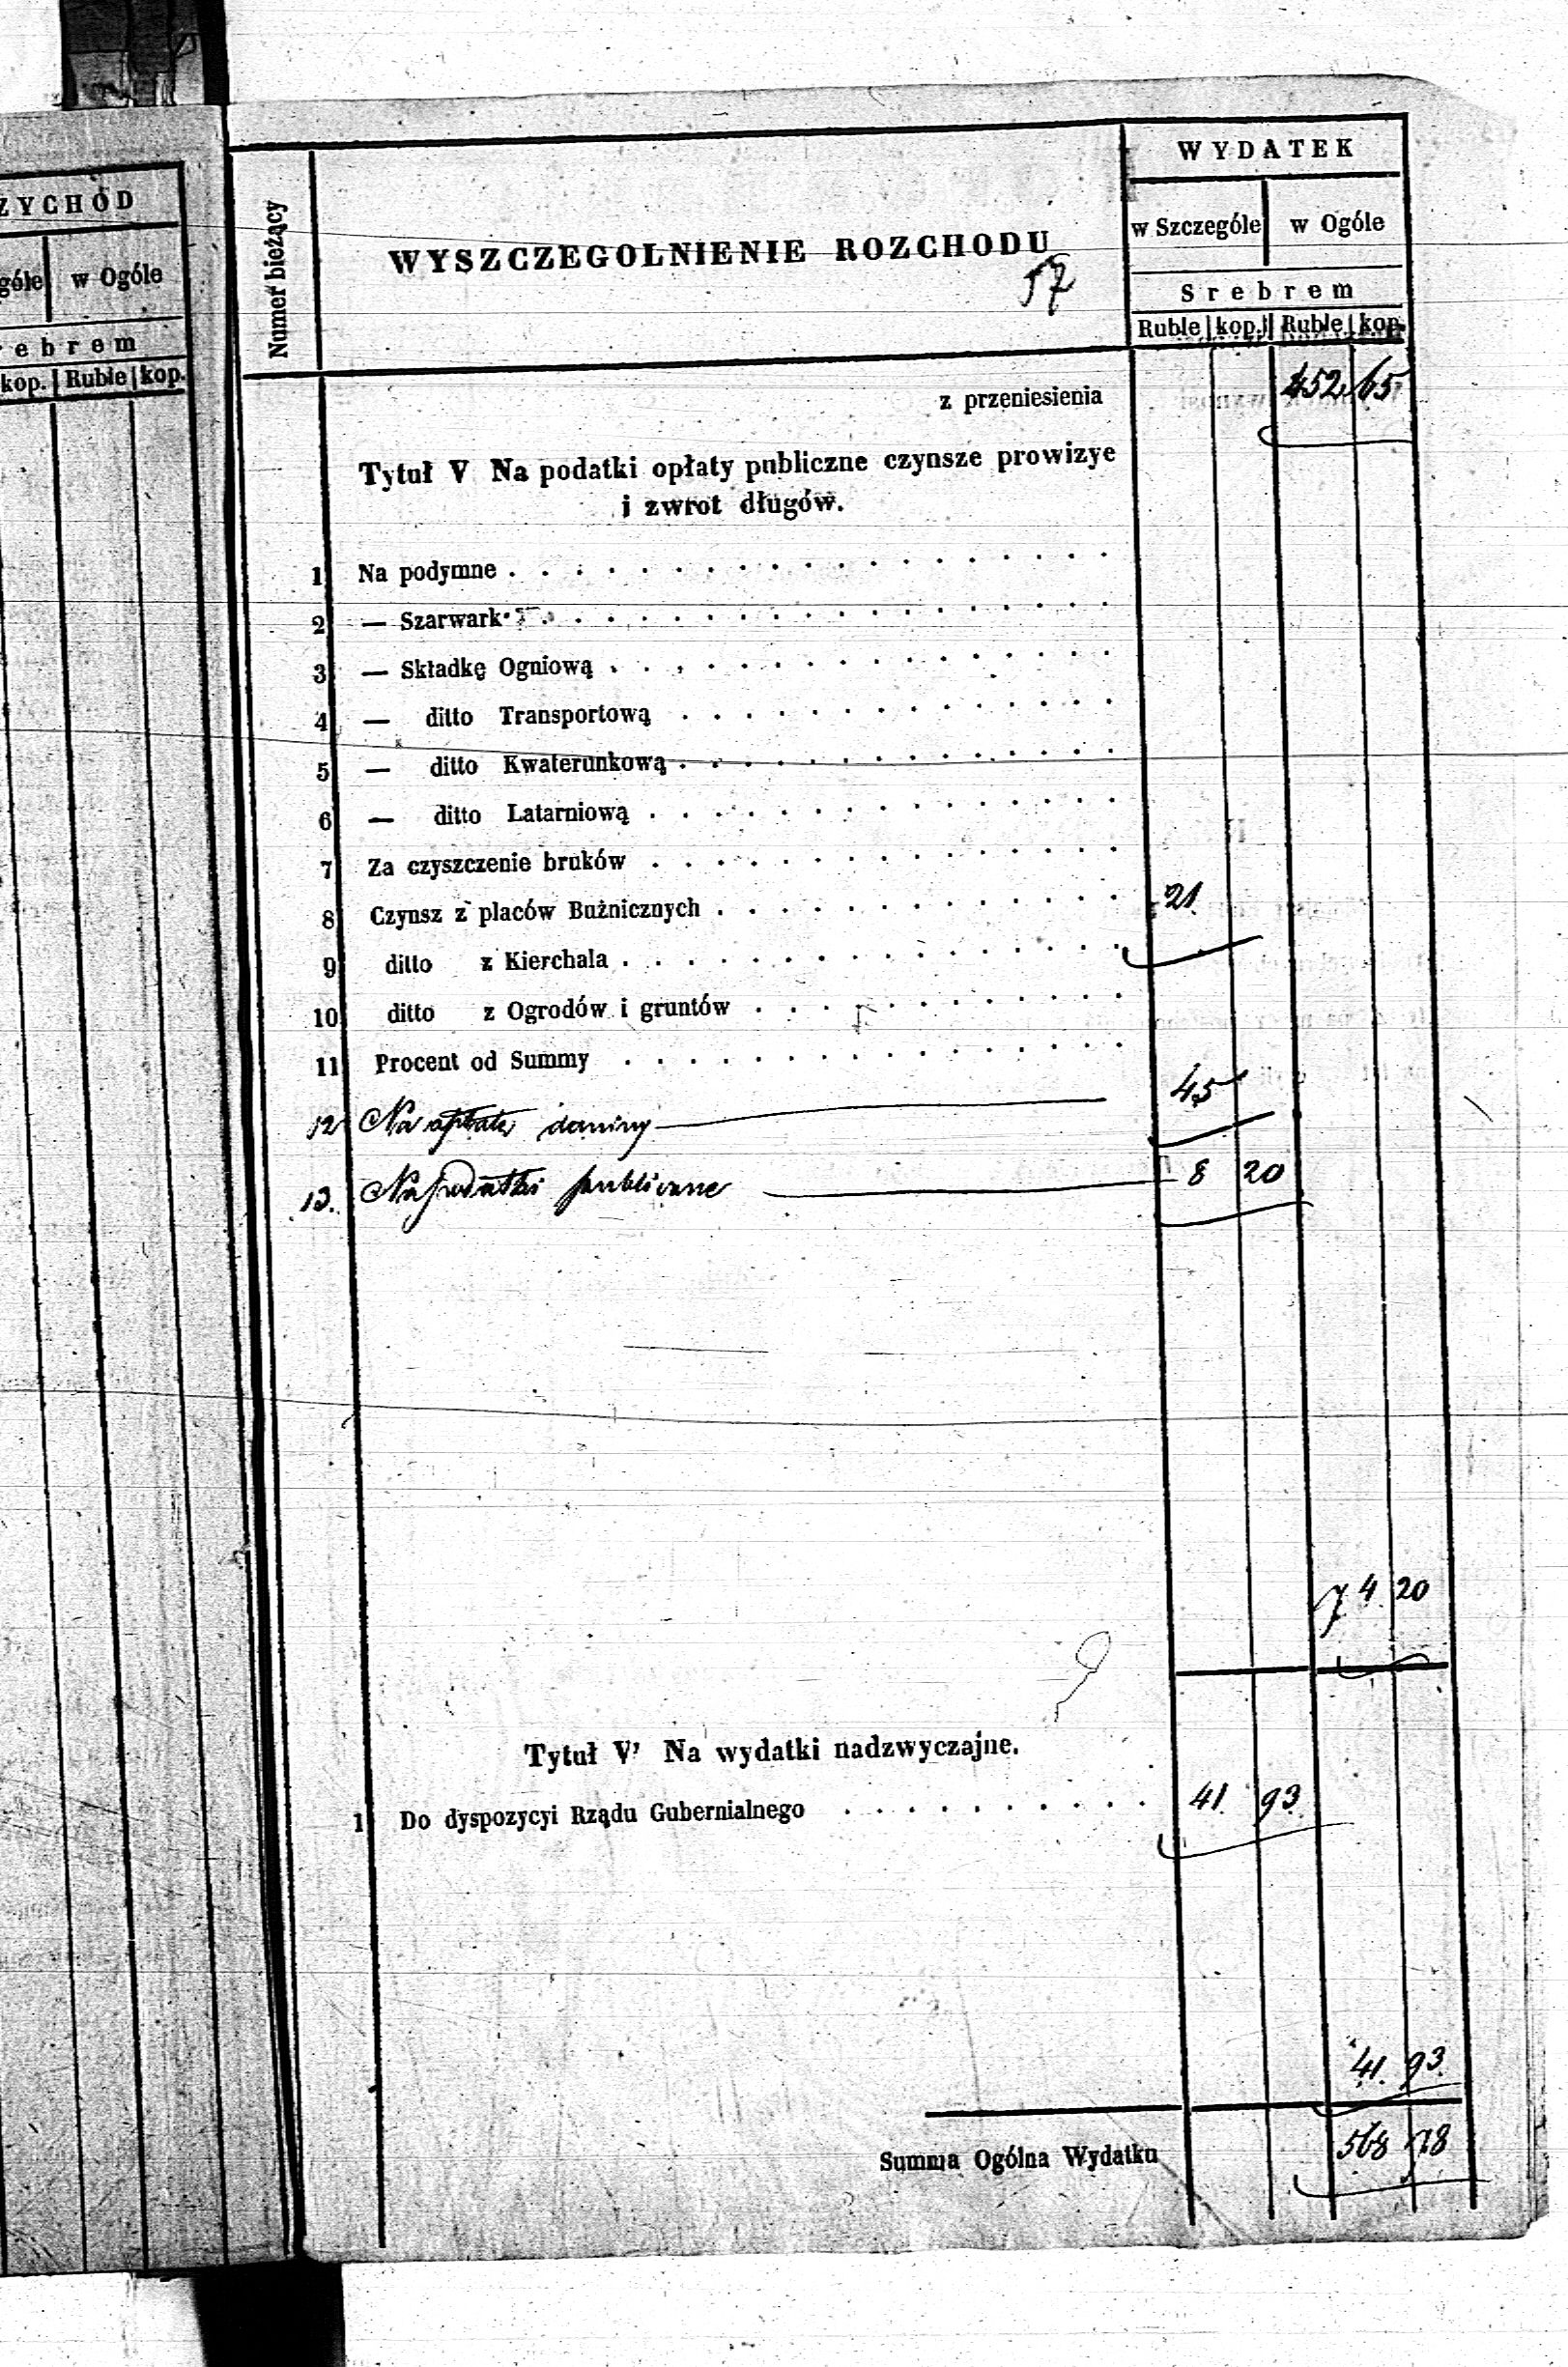 ZYCHÓD
góle w Ogóle
rebrem
kop. Ruble kop.
Numer bieżący
WYSZCZEGOLNIENIE ROZCHODU
57
WYDATEK
w Szczególe w Ogóle
Srebrem
Ruble kop. Ruble kop.
z przeniesienia 452. 65
Tytuł V Na podatki opłaty publiczne czynsze prowizye
i zwrot długów.
1 Na podymne . . . . . . . . . . . . . . . . . . .
2 — Szarwark . . . . . . . . . . . . . . . . . .
3 — Składkę Ogniową . . . . . . . . . . . . . . . .
4 — ditto Transportową . . . . . . . . . . . . . .
5 — ditto Kwaterunkową . . . . . . . . . . . . . .
6 — ditto Latarniową . . . . . . . . . . . . . . .
7 Za czyszczenie bruków . . . . . . . . . . . . . . .
8 Czynsz z placów Bużnicznych . . . . . . . . . . . . . 21.
9 ditto z Kierchala . . . . . . . . . . . . . . . .
10 ditto z Ogrodów i gruntów . . . . . . . . . . . .
11 Procent od Summy . . . . . . . . . . . . . . . .
12 Na opłatę daniny — 45
13. Na podatki publiczne — 8 20
74. 20
Tytuł V' Na wydatki nadzwyczajne.
1 Do dyspozycyi Rządu Gubernialnego . . . . . . . . . . 41. 93.
41. 93.
Summa Ogólna Wydatku 568 78